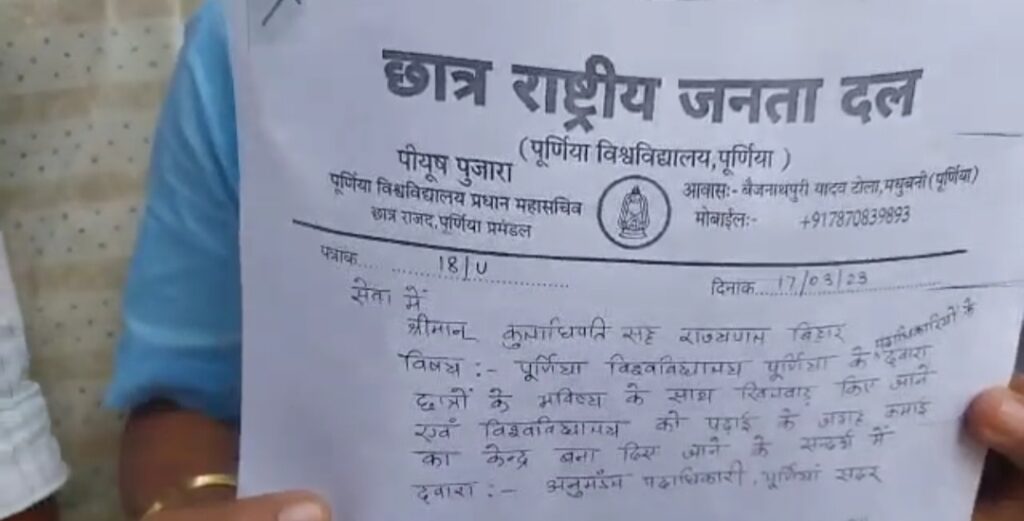 छात्र राष्ट्रीय जनता दल
(पूर्णिया विश्वविद्यालय,पूर्णिया )
पीयूष पुजारा
पूर्णिया विश्वविद्यालय प्रधान महासचिव
छात्र राजद,पूर्णिया प्रमंडल
आवासः- बैजनाथपुरी यादव टोला,मधुबनी (पूर्णिया)
मोबाईलः- +917870839893
पत्रांक.... 18/U
दिनांक....17/03/23
सेवा में
श्रीमान् कुलाधिपति सह राज्यपाल बिहार
विषय :- पूर्णिया विश्वविद्यालय पूर्णिया के पदाधिकारियों के द्वारा
छात्रों के भविष्य के साथ खिलवाड़ किए जाने
एवं विश्वविद्यालय को पढ़ाई के जगह कमाई
का केन्द्र बना दिए जाने के सन्दर्भ में
द्वारा :- अनुमंडल पदाधिकारी, पूर्णियां सदर